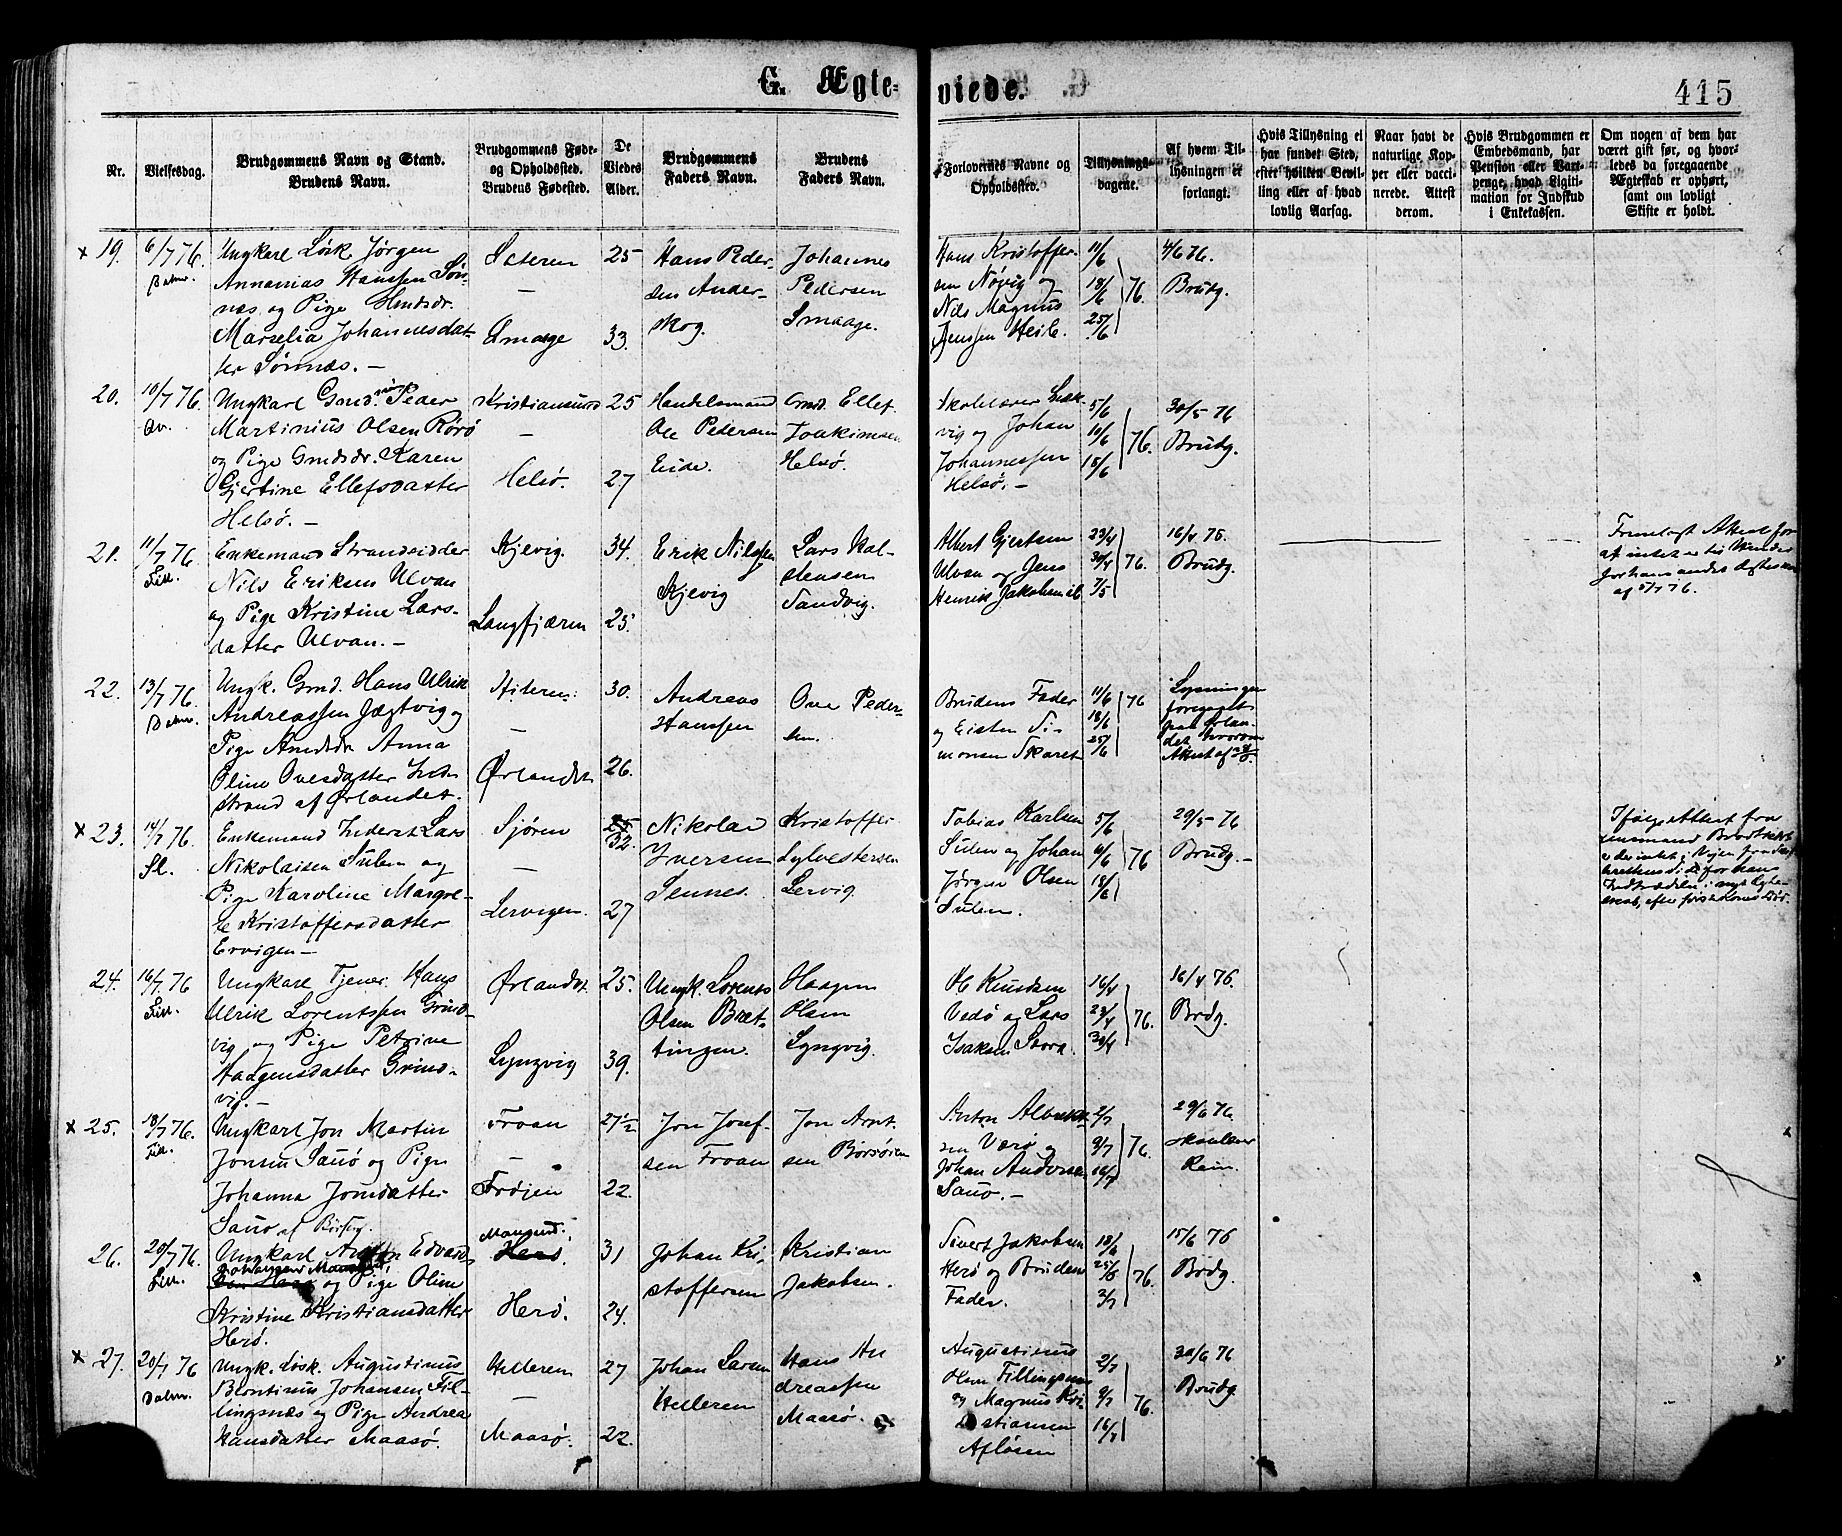 G. Ægte-
viede.
415
Nr.
Vielsesdag.
Brudgommens Navn og Stand.
Brudens Navn.
Brudgommens Føde-
og Opholdssted.
Brudens Fødested.
De
Viedes
Alder.
Brudgommens
Faders Navn.
Brudens
Faders Navn.
Forlovernes Navne og
Opholdssted.
Tillysnings-
dagene.
Af hvem Til-
lysningen er
forlangt.
Hvis Tillysning ei
har fundet Sted,
efter hvilken Bevil-
ling eller af hvad
lovlig Aarsag.
Naar havt de
naturlige Kop-
per eller vacci-
nerede. Attest
derom.
Hvis Brudgommen er
Embedsmand, har
Pension eller Vart-
penge, hvad Ligiti-
mation for Indskud
i Enkekassen.
Om nogen af dem har
været gift før, og hvor-
ledes da foregaaende
Ægteskab er ophørt,
samt om lovligt
Skifte er holdt.
x 19.
6/7 76.
Ungkarl Løsk Jørgen
Annanias Hanssen Søn-
næs og Pige
Marselia Johannesdat-
ter Sønnæs. —
Sæteren
—
Smaage
25
33.
Hans Peder-
sen Ander-
skog.
Johannes
Pedersen
Smaage.
Hans Kristoffer-
sen Nøvig og
Nils Magnus
Jenssen Heile.
11/6
18/6 76.
25/6
4/6 76.
Brudg.
20.
10/7 76.
Qv.
Ungkarl Gmd. Peder
Martinius Olsen Rørø
og Pige Gmdsdr. Karen
Gjertine Ellefsdatter
Helsø. —
Kristiansund
—
Helsø.
25
27
Handelsmand
Ole Pedersen
Eide.
Gmd. Ellef
Joakimsen
Helsø.
Skolelærer
vig og Johan
Johannessen
Helsø. —
5/6
11/6 76.
18/6
30/5 76
Brudg.
21.
11/7 76
Fill.
Enkemand Strandsidder
Nils Eriksen Ulvan
og Pige Kristine Lars-
datter Ulvan. —
Kjevig.
Langfjæren
34.
25.
Erik Nilssen
Kjevig
Lars Hol-
stensen
Sandvig.
Albert Gjertsen
Ulvan og Jens
Henrik Jakobsen
23/4
30/4 76.
7/5
16/4 76.
Brudg.
Fremlagt Attest for
at intet er til Hinder
for hans andet Ægteskab
af 5/7 76.
22.
13/7 76.
Ungk. Gmd. Hans Ulrik
Andreassen Jægtvig og
Pige Gmdsdr Anna
Oline Ovesdatter
strand af Ørlandet.
Hiteren.
—
Ørlandet
30.
26.
Andreas
Hanssen
Ove Peder-
sen.
Brudens Fader
og Eisten Si-
monsen Skaret
11/6 76
18/6
25/6
Lysningen
foregaaet
paa Ørlan-
det hvorom
Attest af
x 23.
14/7 76.
Sl.
Enkemand Inderst Lars
Nikolaisen Sulen og
Pige Karoline Margre-
te Kristoffersdatter
Ervigen —
Sjøren
—
Lervigen
25
32.
27
Nikolai
Iversen
Sennes.
Kristoffer
Sylvestersen
Lervig
Tobias Karlsen
Sulen og Johan
Jørgen Olsen
Sulen.
5/6
11/6 76
18/6
29/5 76
Brudg. —
Ifølge Attest fra
24.
16/7 76
Fill.
Ungkarl Tjener Hans
Ulrik Lorentssen Grind-
vig og Pige Petrine
Haagensdatter Grind-
vig. —
Ørlandet.
Lyngvig
25.
39.
Ungk. Lorents
Olsen Bræt-
tingen.
Haagen
Olsen
Lyngvig.
H Knutsen
Vedø og Lars
Isaksen
16/4
23/4 76.
30/4
16/4 76.
Brdg.
x 25.
18/7 76.
Fill.
Ungkarl Jon Martin
Jonsen Sauø og Pige
Johanna Jonsdatter
Sauø af
Froan
—
Frøjen
27 1/2
22.
Jon Josef-
sen Froan
Jon Arnt-
sen Børsøien
Anton Albrikt-
sen Værø og
Johan Andersen
Sauø. —
2/7
9/7 76.
16/7
29/6 76
26.
20/7 76.
Fill.
Ungkarl Anton Edvard
og Pige Oline
Kristine Kristiansdatter
Herø.
Mausund.
Herø.
Herø.
31
24.
Johan Kri-
stoffersen
Kristian
Jakobsen.
Sivert Jakobsen
Herø og Brudens
Fader.
18/6
25/6 76.
2/7
15/6 76
Brdg.
x 27.
20/7 76
Ungk. Løsk. Augustinus
Blontinus Johansen Fil-
lingsnæs og Pige Andrea
Hansdatter Maasø.
Helleren
—
Maasø.
27
22.
Johan Larsen
Helleren
Hans An
dreassen
Maasø.
Augustinus
Olsen Fillingsnæs
og Magnus Kri-
stiansen
Afløsen
2/7
9/7 76.
16/7
30/6 76
Brudg.